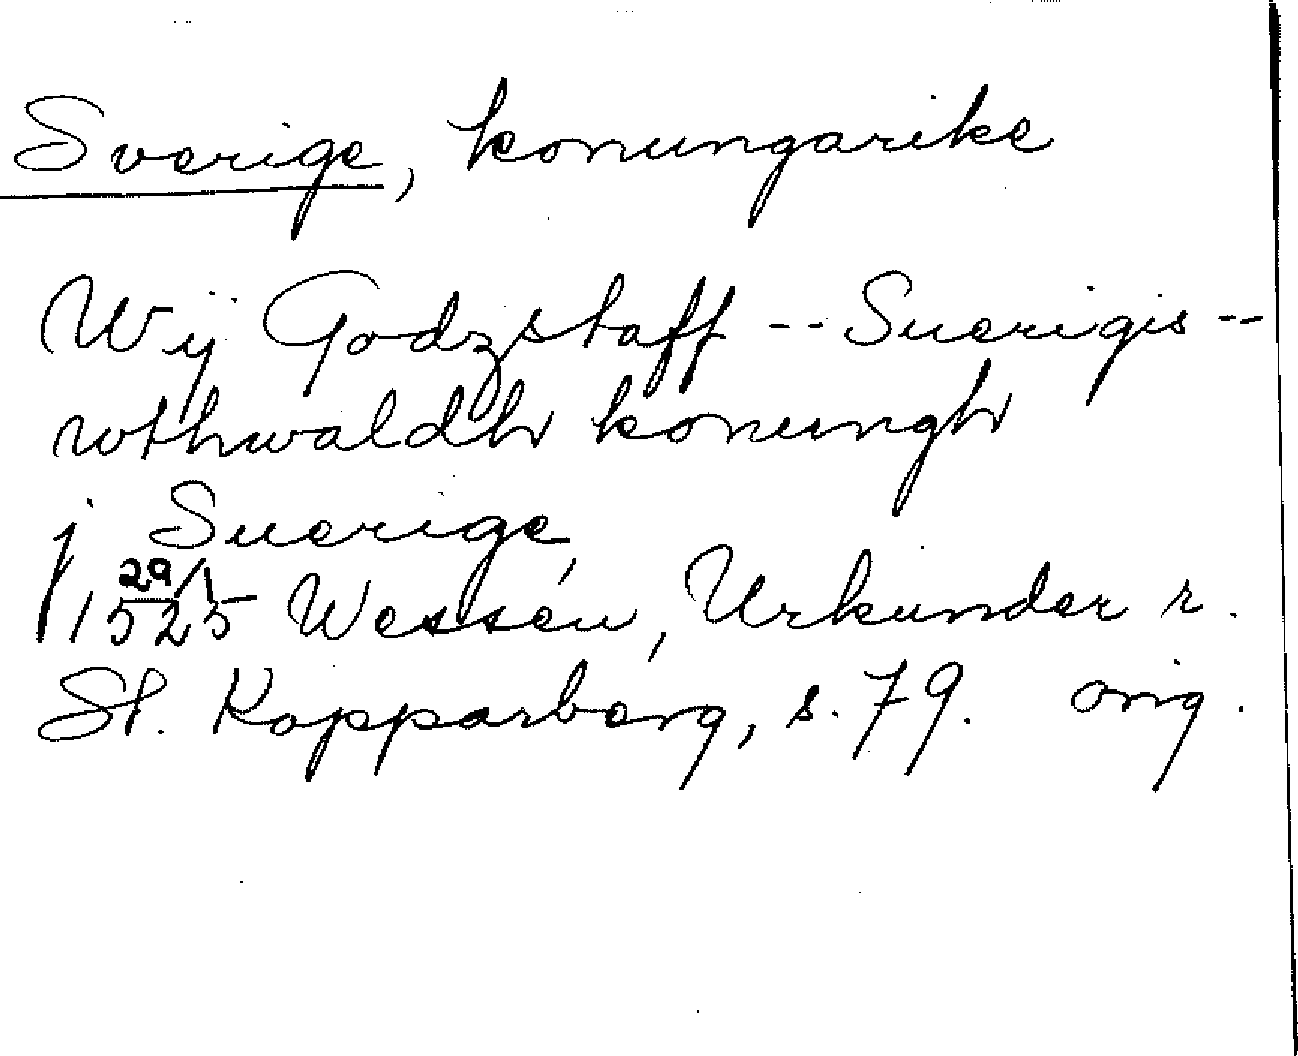 Sverige, konungarike
Wij Godzstaff -- Suerigis --
wthwaldh konungh
j Suerige,
29/1
1525 Wessén, Urkunder r.
St. Kopparberg, s. 79. orig.